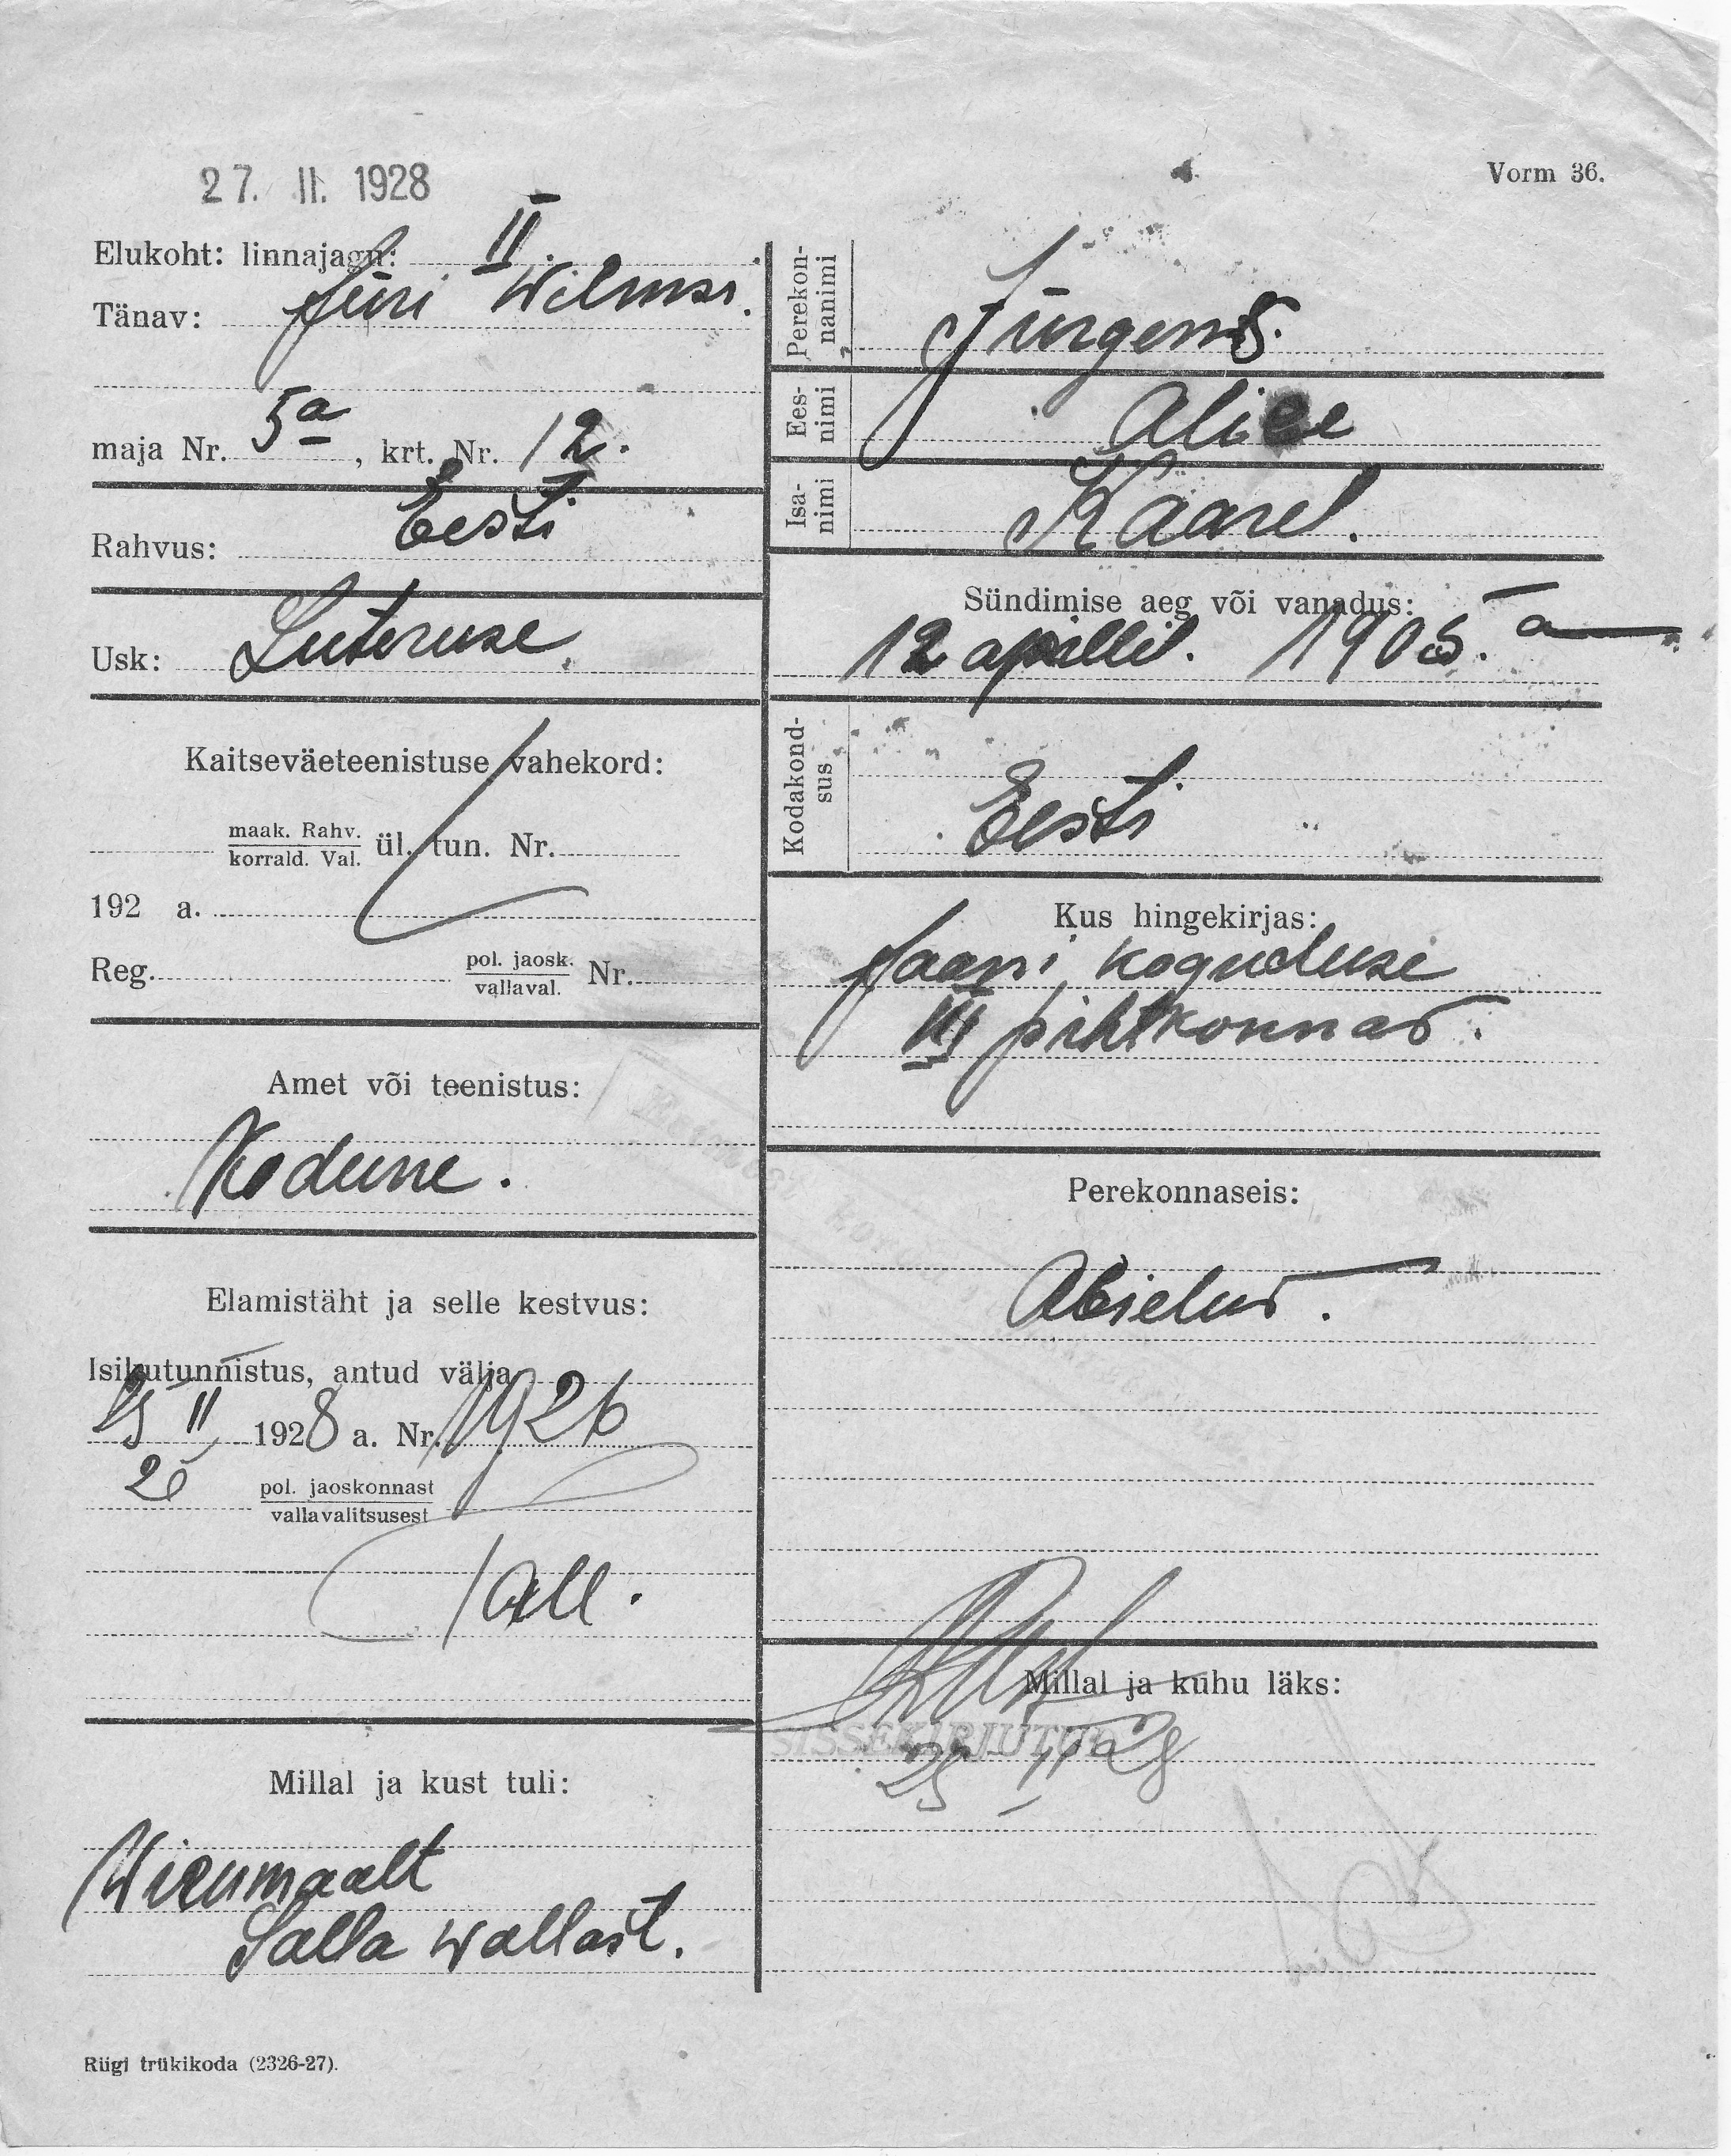 27. II. 1928
Vorm 36.
Elukoht: linnajagu: II
Tänav: Jüri Wilmsi.
maja Nr. 5a, krt. Nr. 12.
Rahvus: Eesti
Usk: Luteruse
Kaitseväeteenistuse vahekord:
maak. Rahv.
korrald. Val. ül. tun. Nr.
192 a.
Reg. pol. jaosk. Nr.
vallaval.
Amet või teenistus:
Kodune.
Elamistäht ja selle kestvus:
Isikutunnistus, antud välja
25 II 1928 a. Nr. 1926
pol. jaoskonnast
vallavalitsusest
Tall.
Millal ja kust tuli:
Wirumaalt
Salla wallast.
Riigi trükikoda (2326-27).
Perekon-
nanimi
Jürgens.
Ees-
nimi
Alice
Isa-
nimi
Kaarel.
Sündimise aeg või vanadus:
12 aprillil. 1905. a
Kodakond-
sus
Eesti
Kus hingekirjas:
Jaani koguduse
III pihtkonnas.
Perekonnaseis:
Abielus.
Millal ja kuhu läks:
SISSEKIRJUTUD
25 II 28